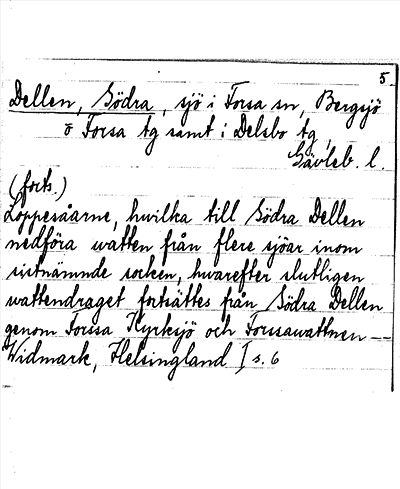 5
Dellen, Södra, sjö i Forsa sn, Bergsjö
o Forsa tg samt i Delsbo tg,
Gävleb. l.
(forts.)
Loppesåarne, hwilka till Södra Dellen
nedföra watten från flere sjöar inom
sistnämnde socken, hwarefter slutligen
wattendraget fortsättes från Södra Dellen
genom Forssa Kyrksjö och Forssawattnen —
Widmark, Helsingland I s. 6